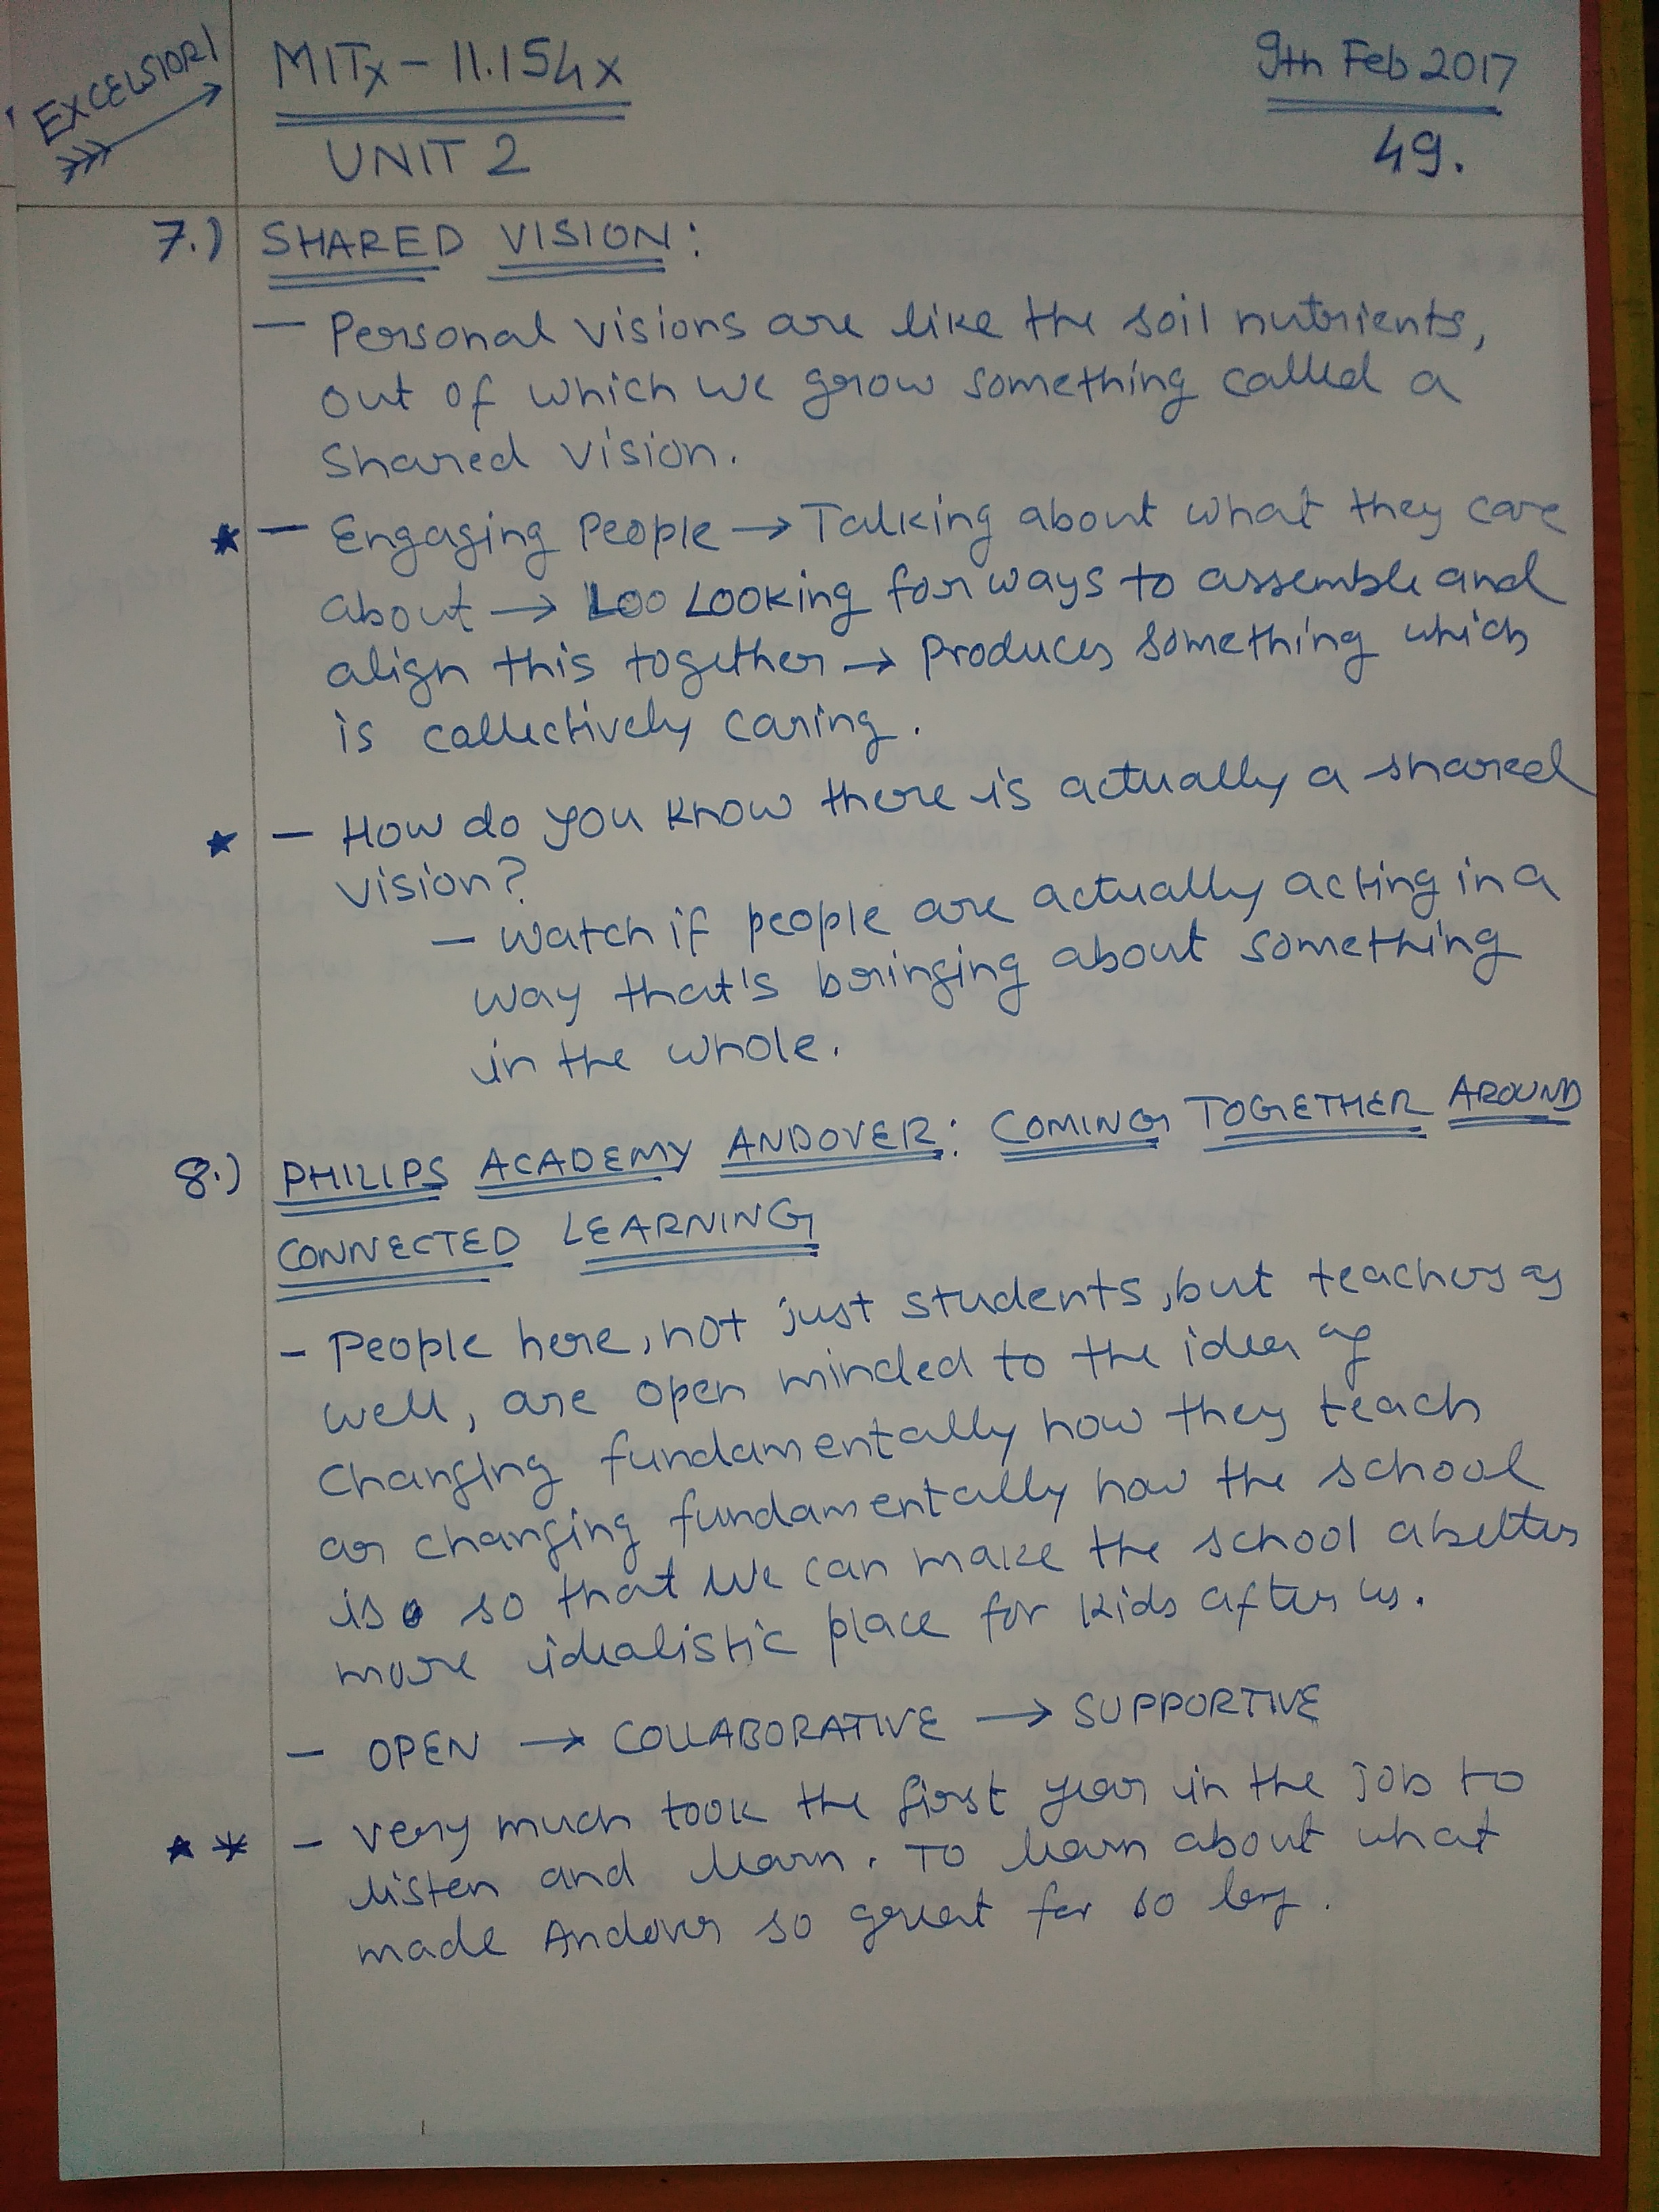 EXCELSIOR!
MITx - 11.154x
9th Feb 2017
UNIT 2
49.
7.) SHARED VISION:
— Personal visions are like the soil nutrients,
out of which we grow something called a
Shared vision.
★ — Engaging People → Talking about what they care
about → Loo Looking for ways to assemble and
align this together → Produces something which
is collectively caring.
★ — How do you know there is actually a shared
vision?
— Watch if people are actually acting in a
way that's bringing about something
in the whole.
8.) PHILIPS ACADEMY ANDOVER: COMING TOGETHER AROUND
CONNECTED LEARNING
- People here, not just students, but teachers as
well, are open minded to the idea of
Changing fundamentally how they teach
or changing fundamentally how the school
is so that we can make the school a better
more idealistic place for kids after us.
— OPEN → COLLABORATIVE → SUPPORTIVE
★ * — Very much took the first year in the job to
listen and learn. To learn about what
made Andover so great for so long.